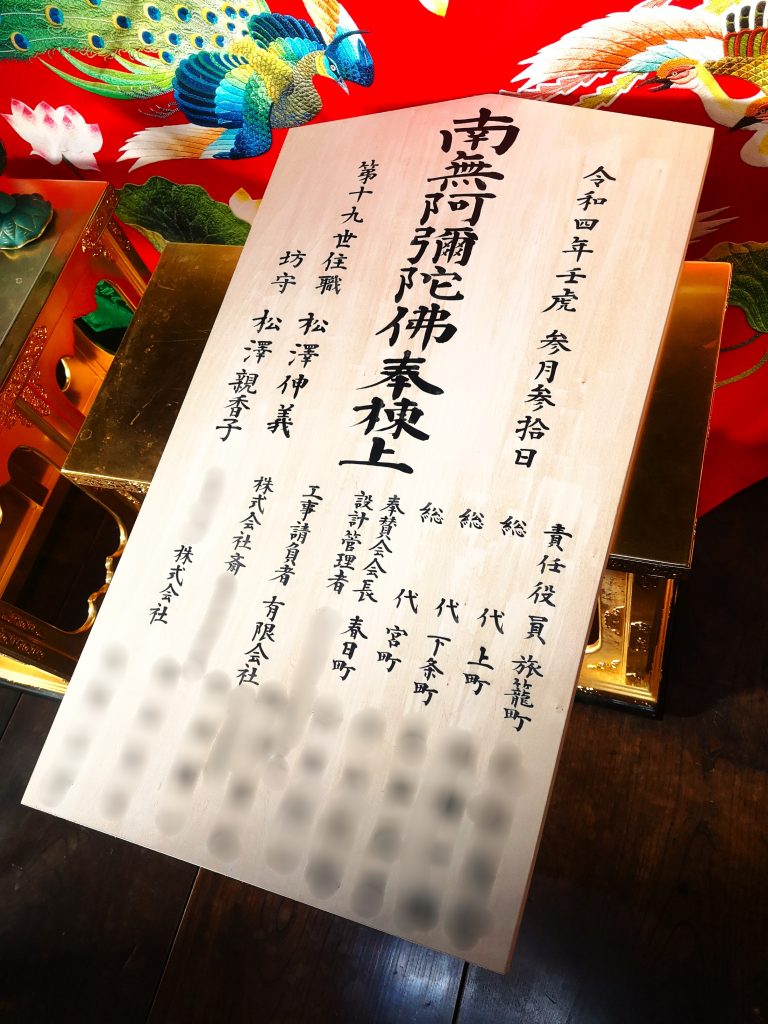 南無阿彌陀佛奉棟上
令和四年壬虎 参月参拾日
第十九世住職 松澤伸義
坊守 松澤親香子
責任役員 旅籠町
総代 上町
総代 下条町
総代 宮町
奉賛会会長 春日町
設計管理者
工事請負者 有限会社
株式会社斎
株式会社